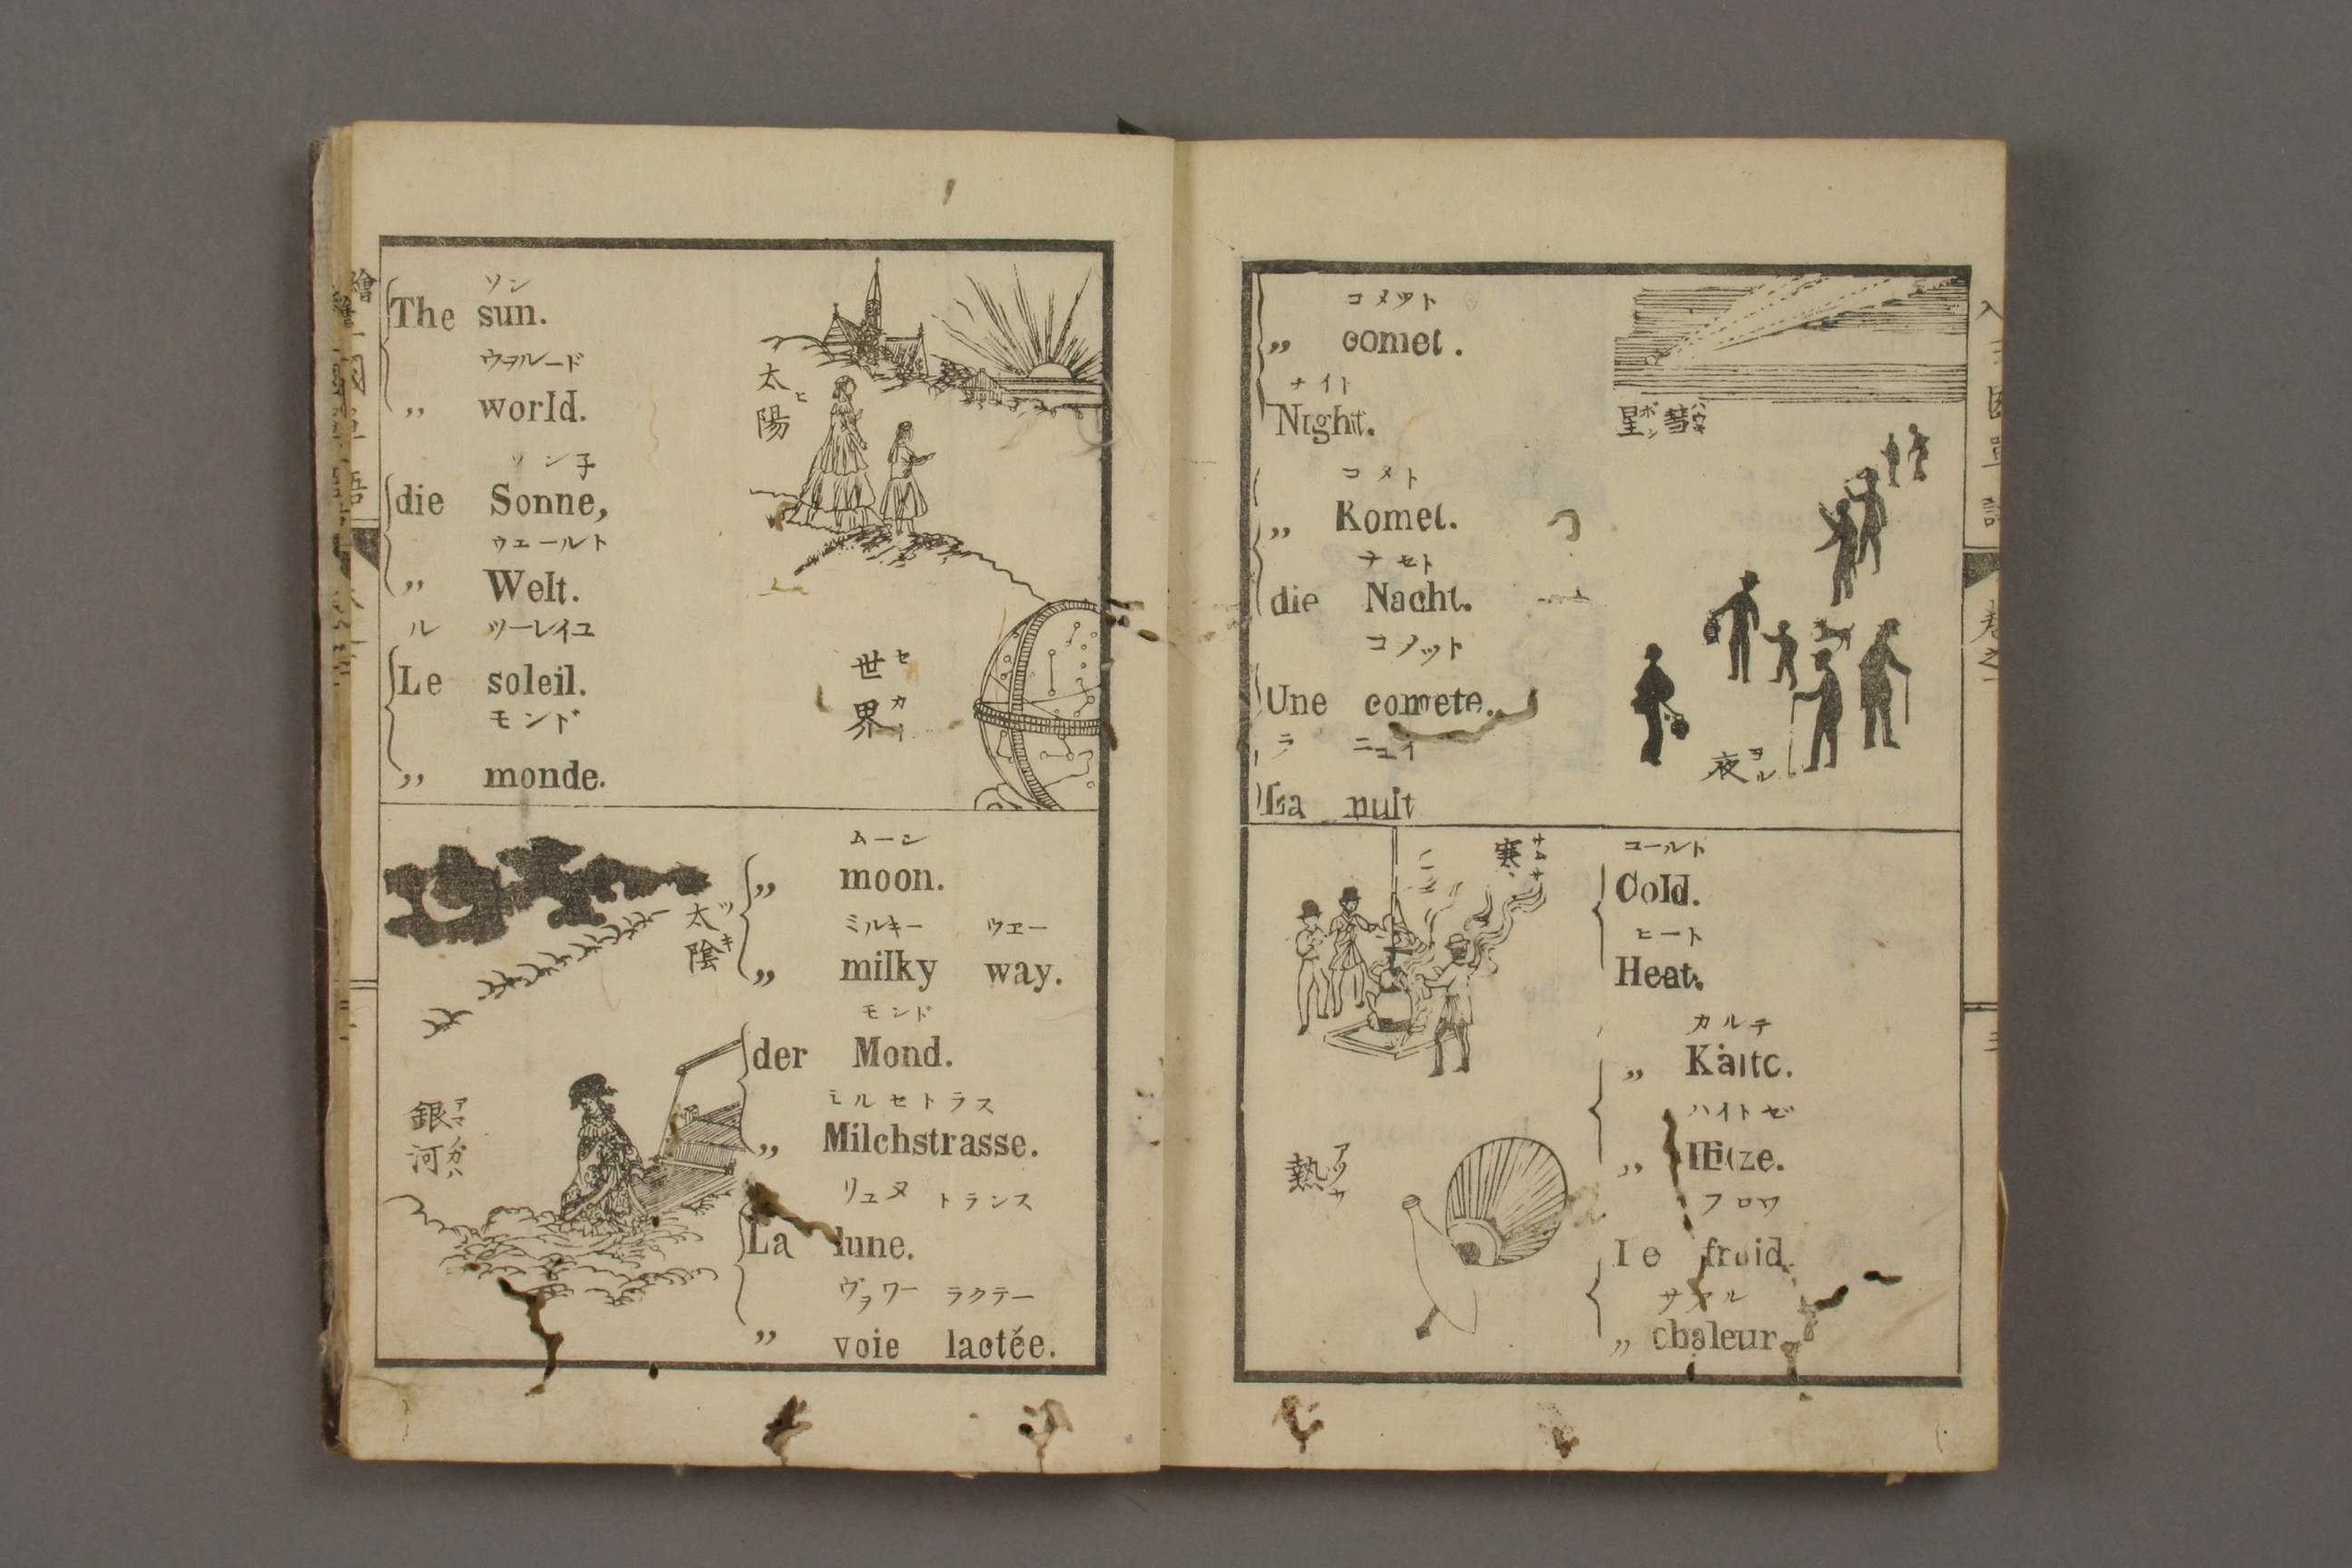 ソン
The sun.
ウヲルード
„ world.
ソン子
die Sonne,
ウェールト
„ Welt.
ル ソーレイユ
Le soleil.
モンド
„ monde.
太陽 ヒ
世界 セカイ
ムーン
„ moon.
ミルキー ウエー
„ milky way.
モンド
der Mond.
ミルセトラス
„ Milchstrasse.
リュヌ トランス
La lune.
ヴヲワー ラクテー
„ voie lactée.
太陰 ツキ
銀河 アマノガハ
コメット
„ comet.
ナイト
Night.
コメト
„ Komet.
ナセト
die Nacht.
コメット
Une comete.
ラ ニュイ
La nuit
彗星 ハウキボシ
夜 ヨル
コールト
Cold.
ヒート
Heat.
カルテ
„ Kàltc.
ハイトゼ
„ Hitze.
フロワ
Le froid.
サアル
„ chaleur
寒 サムサ
熱 アツサ
入三国單語